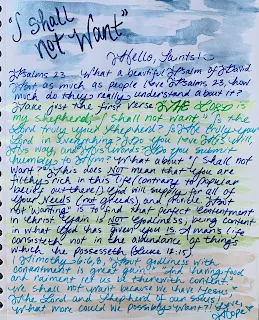 "I Shall
not Want"
Hello, Saints!
Psalms 23 What a beautiful Psalm of David
For as much as people love Psalms 23, how
much do they really understand about it?
Take just the first verse THE LORD is
my shepherd; I shall not want." Is the
Lord truly your Shepherd? Is He truly your
Lord in everything? Do you love His Will,
His ways, and His Words? Do you submit
humbley to Him? What about "I Shall not
want?" This does NOT mean that you are
filthy rich in this life (contrary to popular
belief out there). God will supply for all of
your Needs (not greeds), and
"not wanting" is to find that perfect contentment
in Christ. Gain is NOT Godliness; being content
in what God has given you IS. A man's life
consisteth not in the abundance of things
which he possesseth (Luke 12:15)
I Timothy 6:6,8 "But godliness with
contentment is great gain." "And having food
and raiment let us be therewith content."
We shall not want because we have Jesus,
The Lord and Shepherd of our souls!
What more could we possibly want?
Love,
Hope